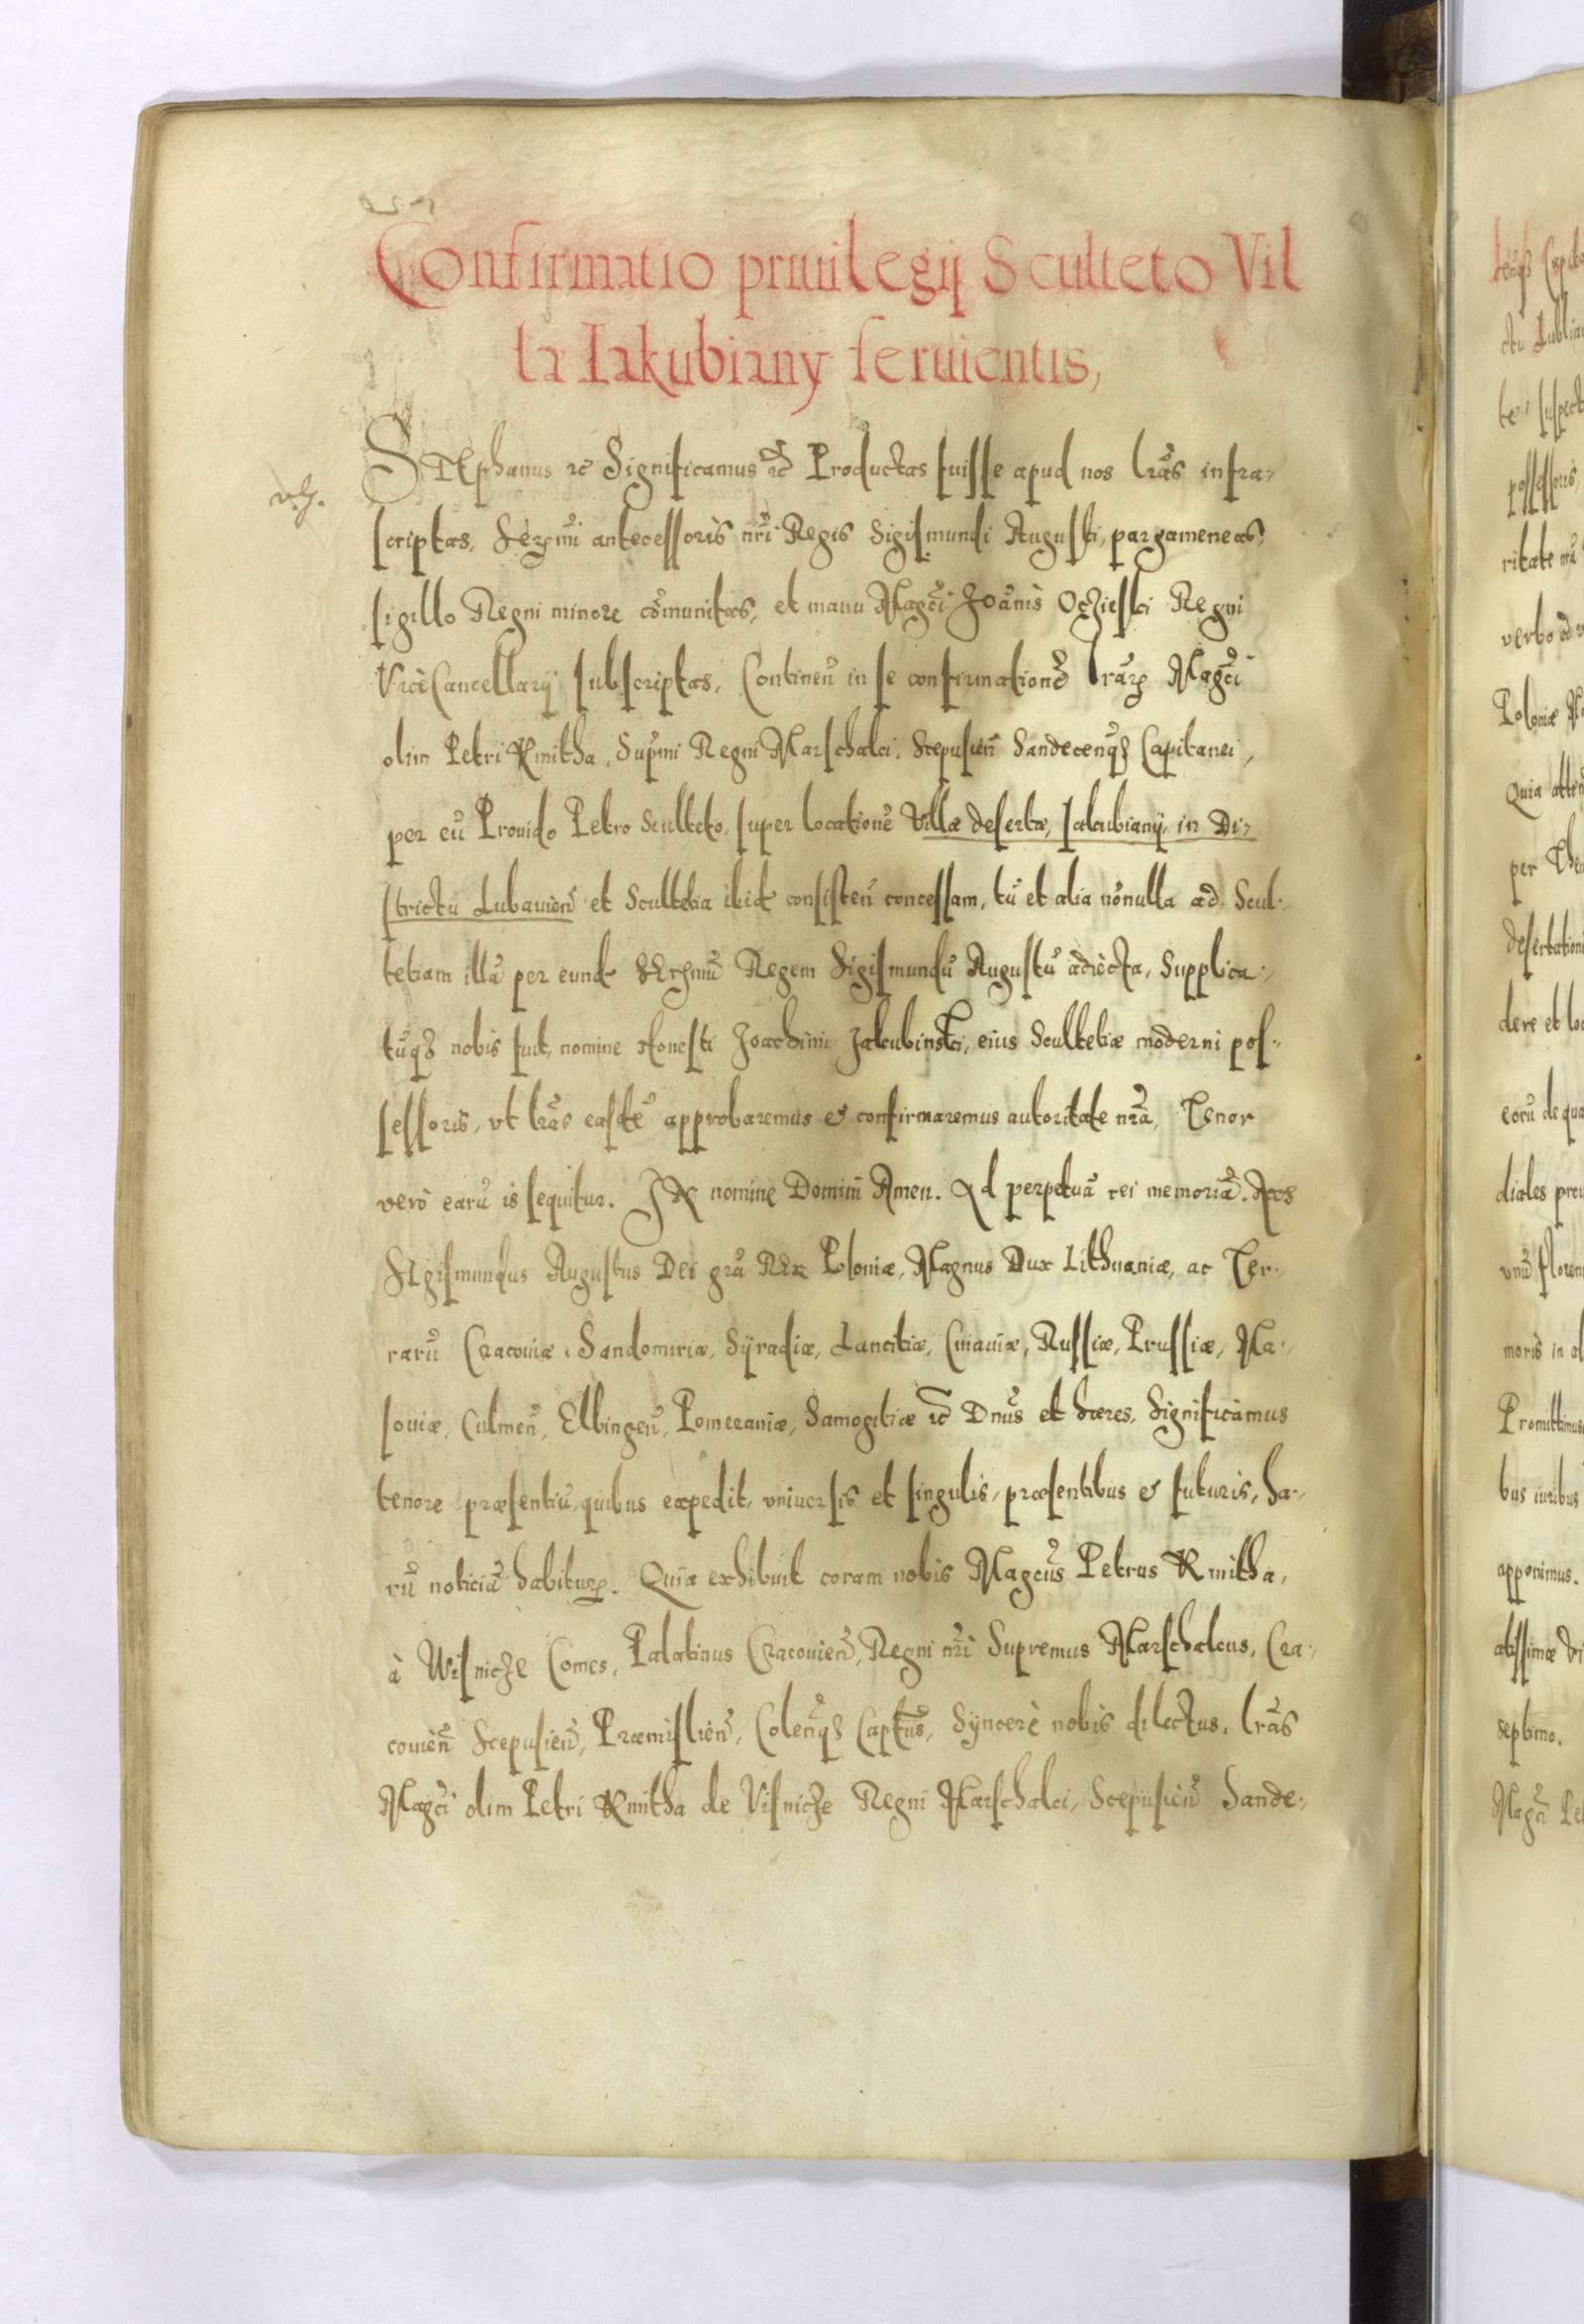 Confirmatio priuilegij Sculteto Vil
læ Iakubiany seruientis,
STEphanus ec̃ Significamus ec̃ Productas fuisse apud nos lr̃as infra-
scriptas, Ser̃mi antecessoris nr̃i Regis Sigismundi Augusti, pargameneas,
sigillo Regni minore cõmunitas, et manu Magc̃i Joãnis Oczieski Regni
ViceCancellarij subscriptas, Continen̄ in se confirmationẽ lr̃arꝝ Magc̃i
olim Petri Kmitha, Supr̃mi Regni Marschalci, Scepusien̄ Sandecenqꝫ Capitanei,
per eũ Prouido Petro Sculteto, super locationẽ Villæ desertæ, Jakubiany, in Di-
strictu Lubauien̄ et Scultetia ibidẽ consisten̄ concessam, tũ et alia nõnulla ad Scul-
tetiam illã per eundẽ SERꝫmũ Regem Sigismundũ Augustũ adiecta, Supplica-
tũqꝫ nobis fuit, nomine Honesti Joachimi Jakubinski, eius Scultetiæ moderni pos-
sessoris, vt lr̃as easdẽ approbaremus & confirmaremus autoritate nr̃a, Tenor
verò earũ is sequitur. IN nomine Domini Amen. Ad perpetuã rei memoriã. Nos
SIgismundus Augustus Dei grã REx Poloniæ, Magnus Dux Lithuaniæ, ac Ter-
rarũ Cracouiæ, Sandomiriæ, Syradiæ, Lancitiæ, Cuiauiæ, Russiæ, Prussiæ, Ma-
souiæ, Culmen̄, Elbingen̄, Pomeraniæ, Samogitiæ ec̃ Dnũs et hæres, Significamus
tenore præsentiũ, quibus expedit, vniuersis et singulis, præsentibus & futuris, ha-
rũ noticiã habiturꝝ. Quia exhibuit coram nobis Magcũs Petrus Kmitha,
à Wisnicze Comes, Palatinus Cracouien̄, Regni nr̃i Supremus Marschalcus, Cra-
couien̄ Scepusien̄, Præmislien̄, Colenqꝫ Captñs, Syncerè nobis dilectus, lr̃as
Magc̃i olim Petri Kmitha de Visnicze Regni Marschalci, Scepusien̄ Sande-